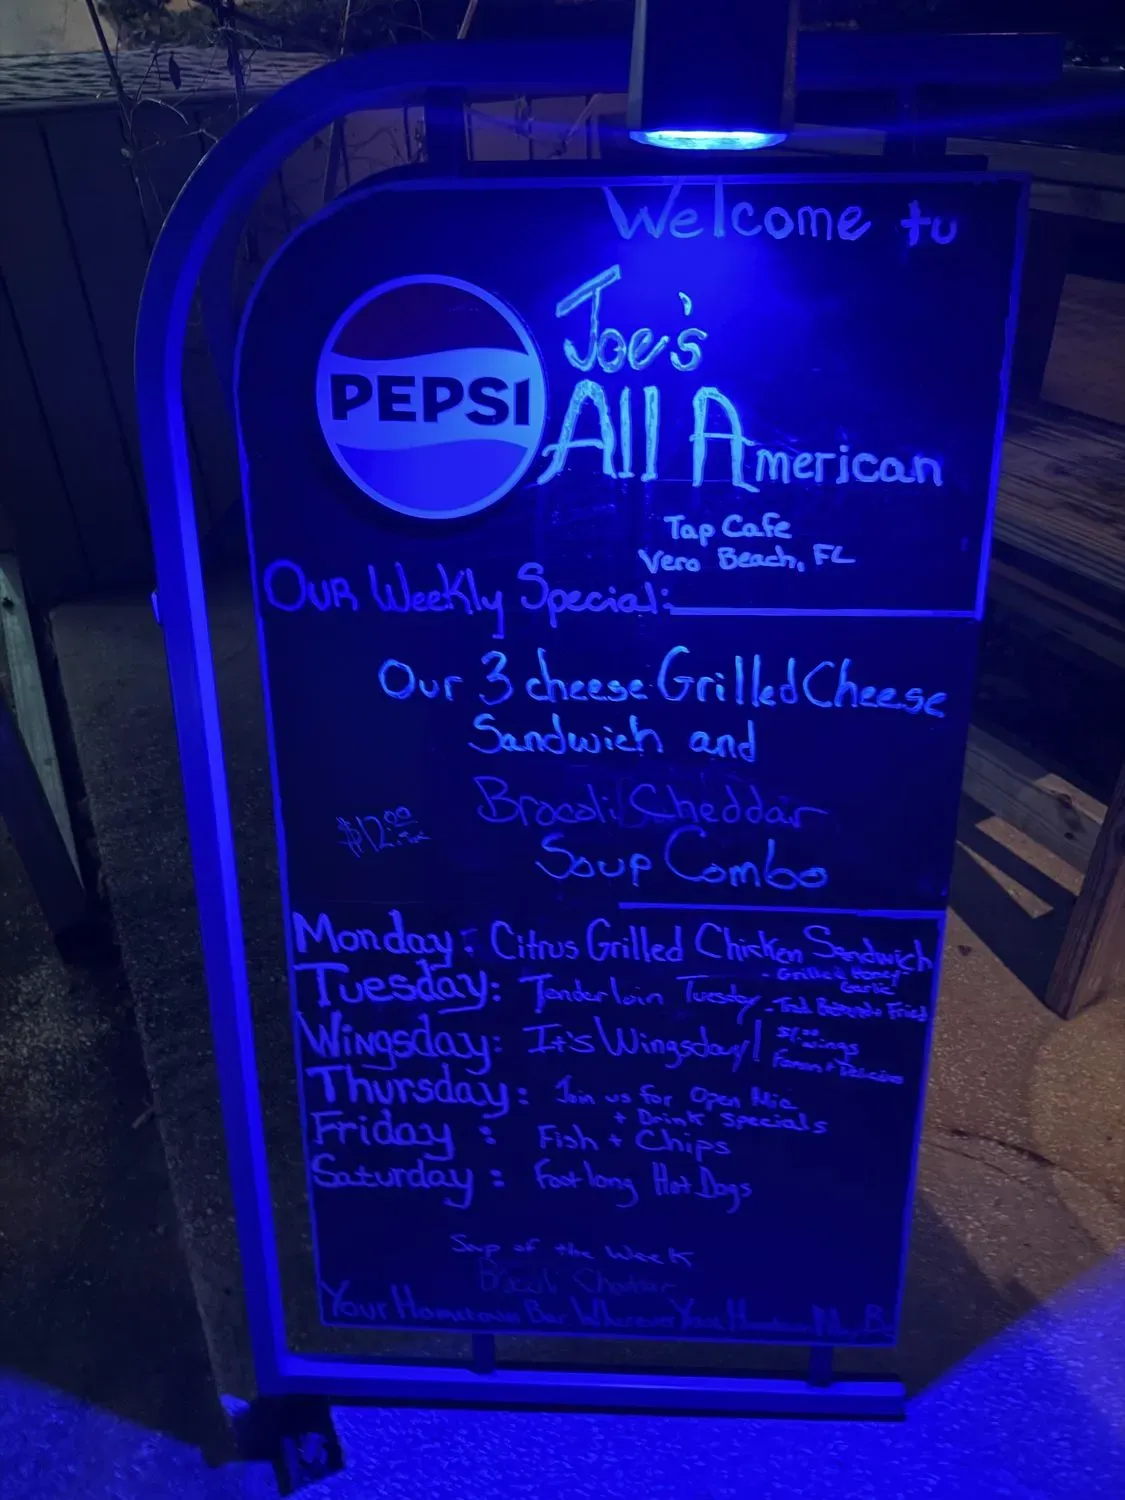 Welcome to
PEPSI
Joe's
All American
Tap Cafe
Vero Beach, FL
Our Weekly Special:
Our 3 cheese Grilled Cheese
Sandwich and
Brocoli Cheddar
$12.00
Soup Combo
Monday: Citrus Grilled Chicken Sandwich
Tuesday: Tenderloin Tuesday - Grilled Honey
Garlic
Fried
Wingsday: It's Wingsday! $1.00
wings
Thursday: Join us for Open Mic
+ Drink Specials
Friday: Fish + Chips
Saturday: Footlong Hot Dogs
Soup of the Week
Brocoli Cheddar
Your Hometown Bar Wherever Your Hometown May Be